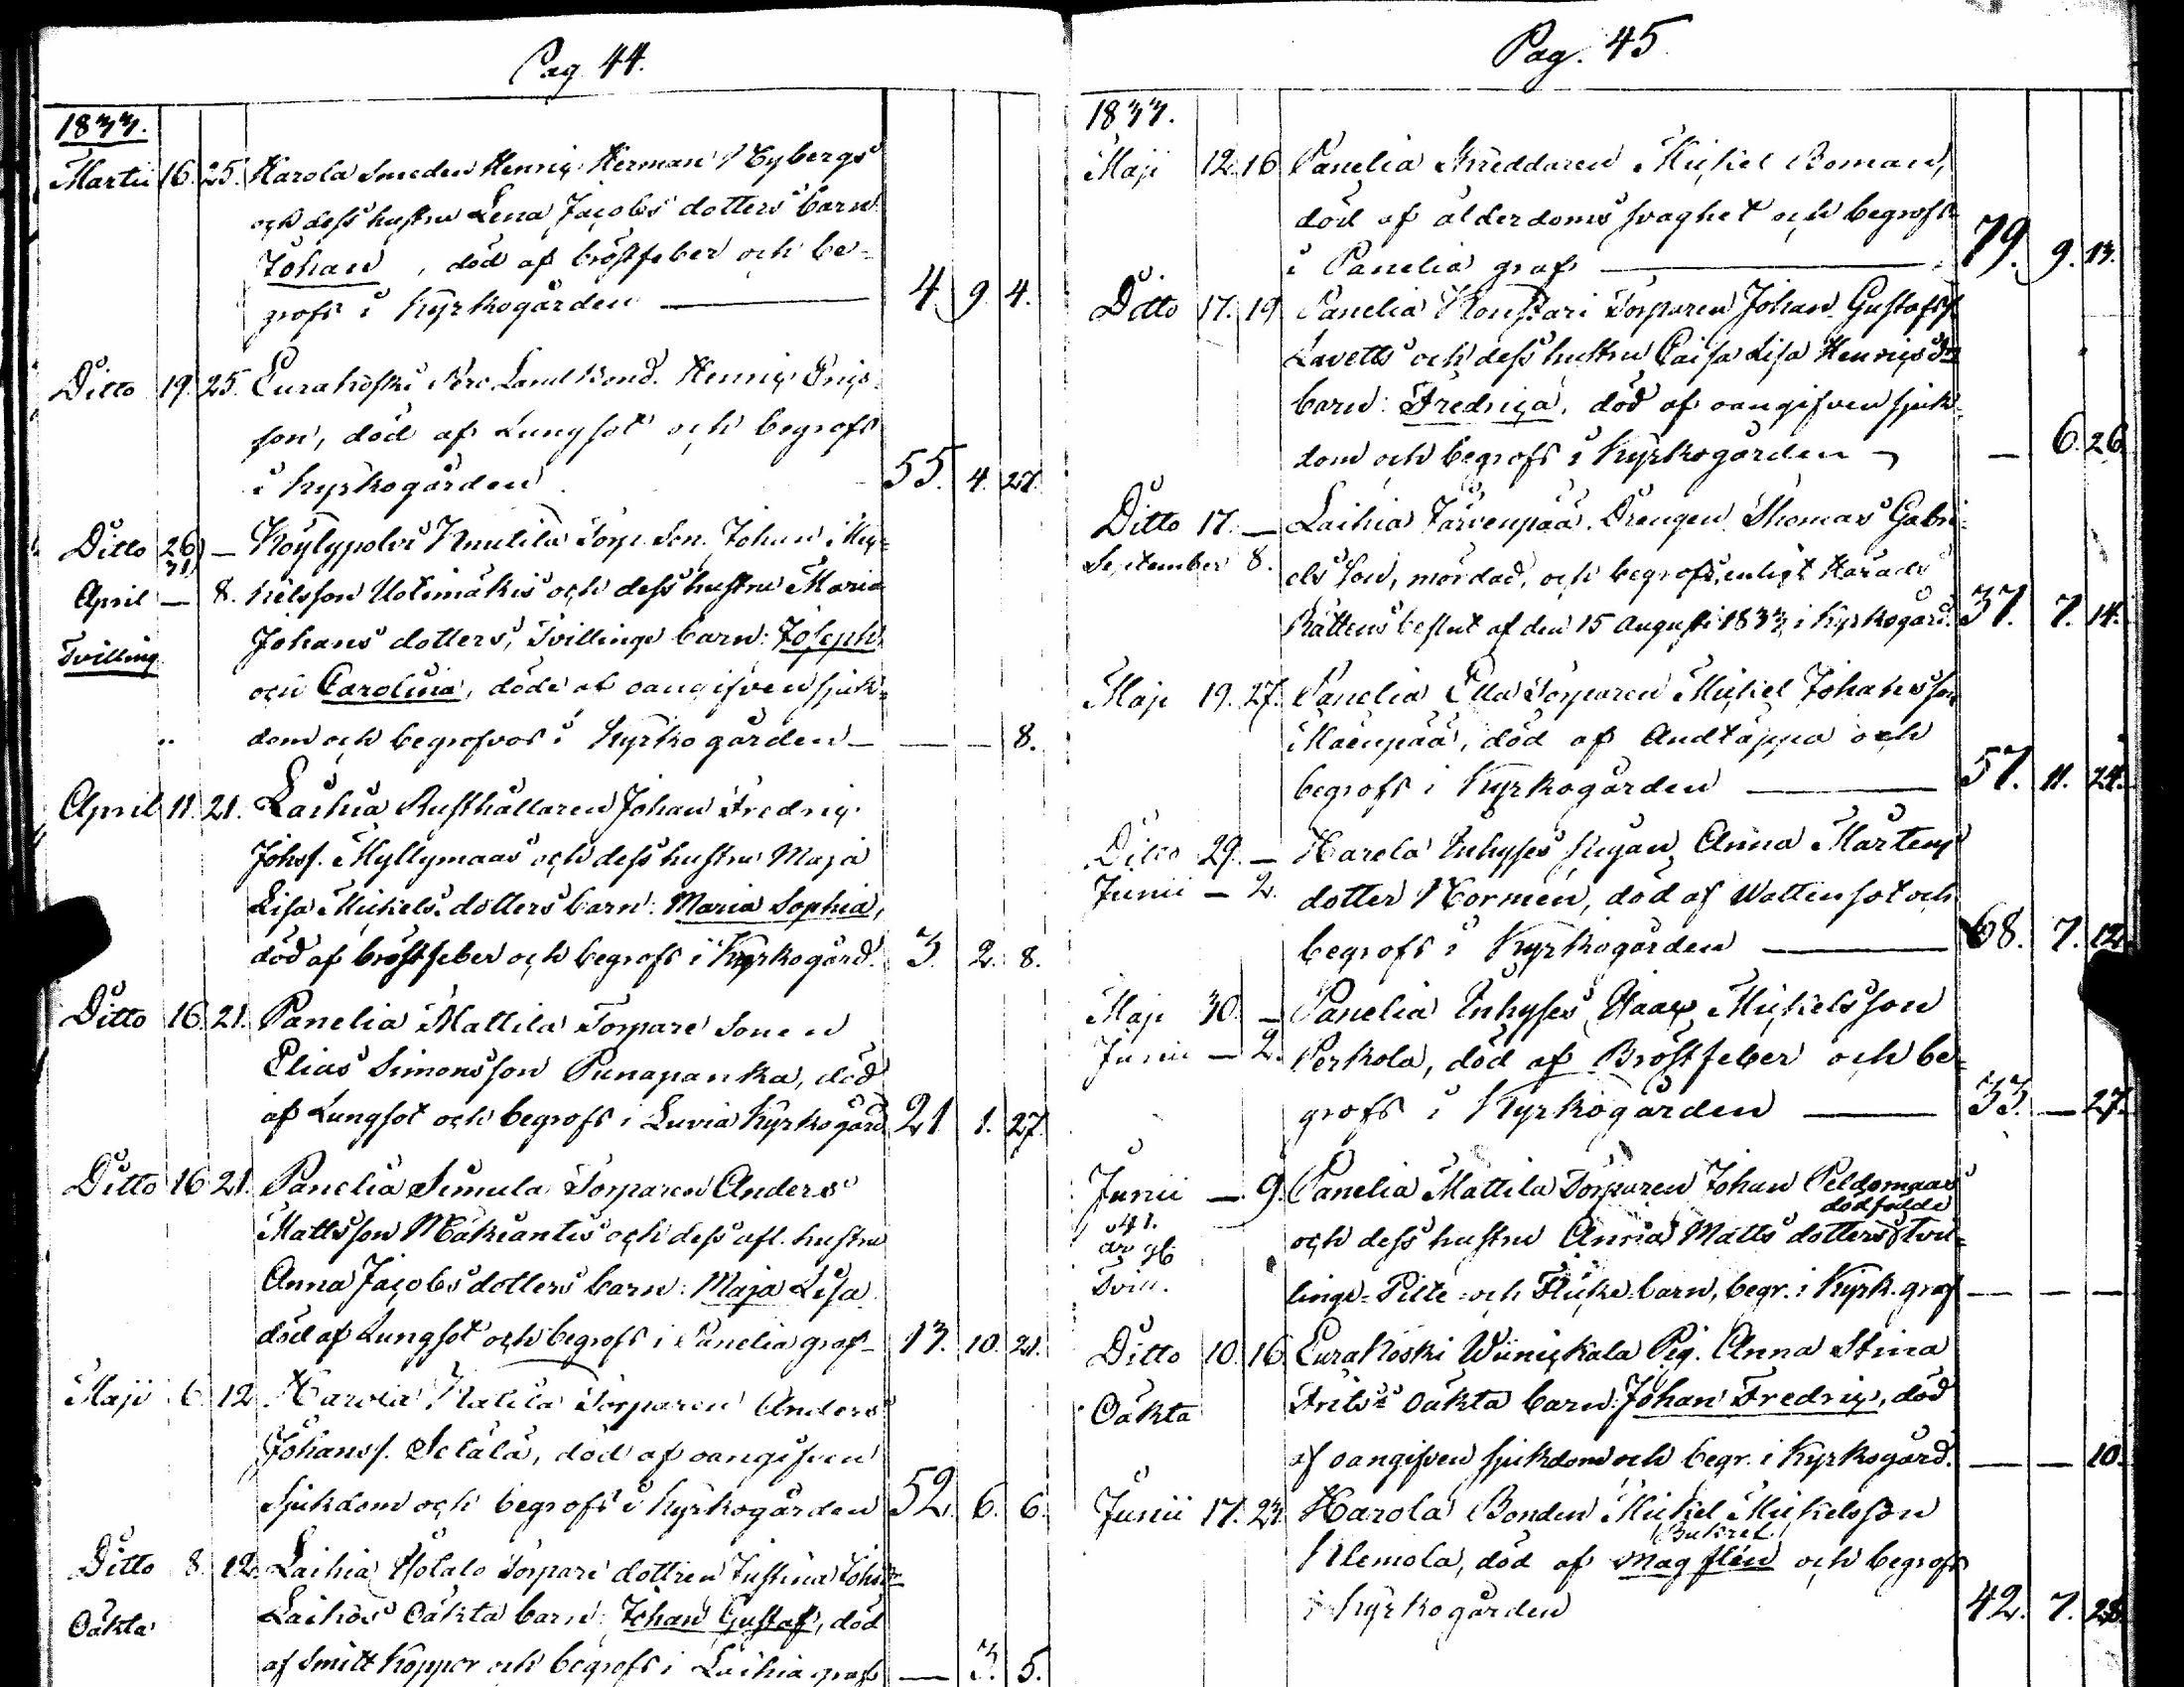 Pag. 44.
1833.
Martii 16. 25. Harola Smeden Henric Herman Nybergs
och dess hustru Lena Jacobs dotters barn:
Johan, död af bröstfeber och be-
grofs i Kyrkogården — 4. 9. 4.
Ditto 19. 25. Eurakoski Land Bond. Henric Erics-
son, död af Lungsot och begrofs
i Kyrkogården 55. 4. 27.
Ditto 26 — Köylypolvi Knutila Torp. Son. Johan Mic-
31
April — 8. kelsson Uotimäkis och dess hustru Maria
Johans dotters, Tvillinge barn: Joseph
Tvilling
och Carolina, döde af oangifven sjuk-
dom och begrofvos i Kyrkogården — — — 8.
April 11. 21. Laihia Rusthållaren Johan Fredric
Johsf. Myllymaas och dess hustru Maja
Lisa Mickels dotters barn: Maria Sophia,
död af bröstfeber och begrofs i Kyrkogård. 3. 2. 8.
Ditto 16. 21. Panelia Mattila Torpare Sonen
Elias Simonsson Punapanka, död
af Lungsot och begrofs i Luvia Kyrkogård 21. 1. 27.
Ditto 16 21. Panelia Simula Torparen Anders
Mattsson Mäkiantis och dess afl. hustru
Anna Jacobs dotters barn: Maja Lisa
död af Lungsot och begrofs i Panelia graf — 13. 10. 21.
Maji 6. 12. Harola Torparen Anders
Johansf. Setälä, död af oangifven
sjukdom och begrofs i Kyrkogården 52. 6. 6.
Ditto 8. 12. Laihia Torpare dottren Justina Johsdr
Oäkta
Laihos Oäkta barn: Johan Gustaf, död
af Smitt koppor och begrofs i Laihia graf — 3. 5.
Pag. 45
1833.
Maji 12. 16 Panelia Skreddaren Mickel Boman,
död af ålderdoms svaghet och begrofs
i Panelia graf — 79. 9. 13.
Ditto 17. 19 Panelia Konstari Torparen Johan Gustafsf.
Lavetts och dess hustru Caisa Lisa Henrics Dr
barn: Fredrica, död af oangifven sjuk-
dom och begrofs i Kyrkogården — — 6. 26
Ditto 17. — Laihia Järvenpää Drengen Thomas Gabri-
September 8. els Son, mördad, och begrofs, enligt Härads
Rättens beslut af den 15 Augusti 1833, i Kyrkogård. 37. 7. 14.
Maji 19. 27. Panelia Ella Torparen Mickel Johansson
Mäenpää, död af Andtäppa och
begrofs i Kyrkogården — 57. 11. 24.
Ditto 29. — Harola Inhyses Anna Mårtens
Junii — 2. dotter Normén, död af Wattensot och
begrofs i Kyrkogården — 68. 7. 12.
Maji 30. — Panelia Inhyses Isaac Mickelsson
Junii — 2. Perkola, död af Bröstfeber och be-
grofs i Kyrkogården — 33. — 27.
Junii — 9. Panelia Mattila Torparen Johan Peldomaas
dödfödde
41.
år gl.
och dess hustru Anna Matts dotters Tvil-
Tvill.
linge- Pilte- och Flicke- barn, begr. i Kyrk. graf — — —
Ditto 10. 16. Eurakoski Wiinickala Pig. Anna Stina
Oäkta
Frits Dr Oäkta barn: Johan Fredric, död
af oangifven sjukdom och begr. i Kyrkogård. — — 10.
Junii 17. 23. Harola Bonden Mickel Mickelsson
Bukref
Klemola, död af Mag flén och begrofs
i Kyrkogården 42. 7. 28.